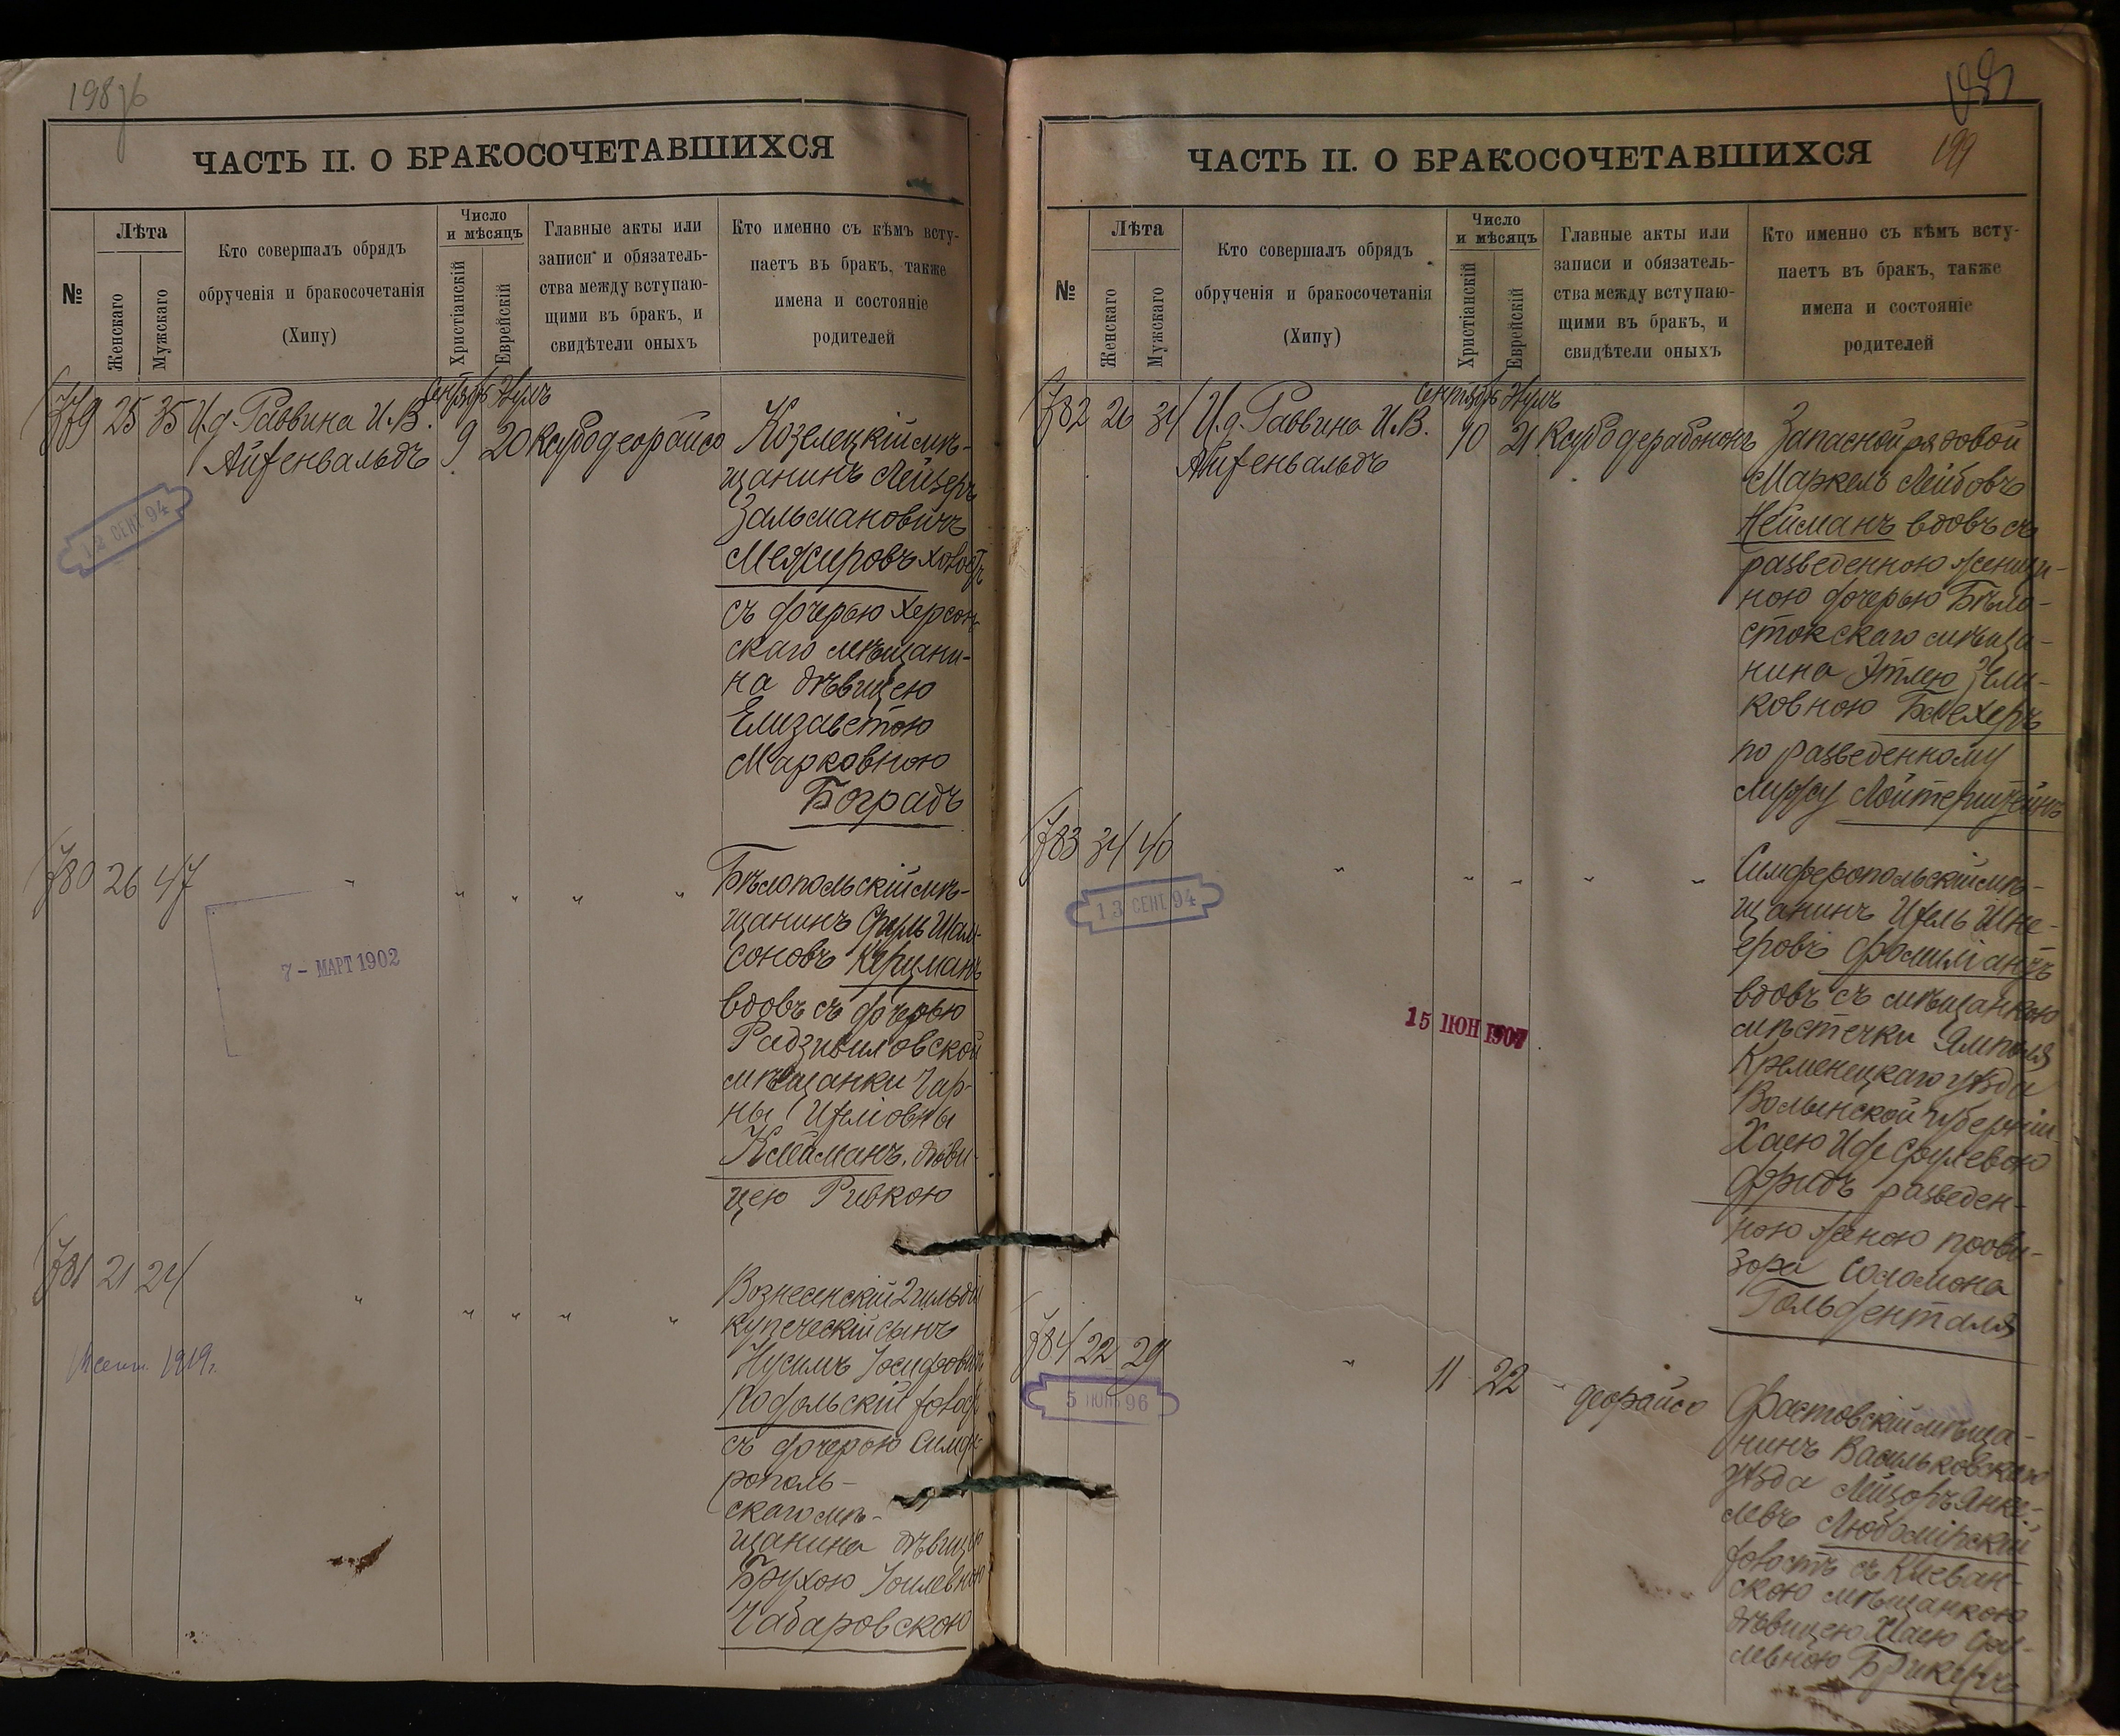 198об
ЧАСТЬ II. О БРАКОСОЧЕТАВШИХСЯ
№
Лѣта
Женскаго
Мужскаго
Кто совершалъ обрядъ
обрученія и бракосочетанія
(Хипу)
Число
и мѣсяцъ
Христіанскій
Еврейскій
Главные акты или
записи и обязатель-
ства между вступаю-
щими въ бракъ, и
свидѣтели оныхъ
Кто именно съ кѣмъ всту-
паетъ въ бракъ, также
имена и состояніе
родителей
379 25 35 И.д. Раввина И.В.
Айзенвальдъ
9 20
Козелецкій мѣ-
щанинъ Лейзеръ
Зальмановичъ
Межировъ холост
съ дочерью Херсон-
скаго мѣщани-
на дѣвицею
Елизаветою
Марковною
Боградъ
12 СЕНТ 94
380 26 47 " " " " "
Бѣлопольскій мѣ-
щанинъ Сруль Шам-
соновъ Керцманъ
вдовъ съ дочерью
Радзивиловской
мѣщанки Чар-
ны
Клейманъ, дѣви-
цею Ривкою
7 - МАРТ 1902
381 21 24 " " " " "
Вознесенскій 2 гильдіи
купеческій сынъ
Нусимъ Іосифовичъ
Подольскій холост
съ дочерью Симфе-
рополь-
скаго мѣ-
щанина дѣвицею
Брухою Іоилевною
Чабаровскою
1919г.
199
ЧАСТЬ II. О БРАКОСОЧЕТАВШИХСЯ
№
Лѣта
Женскаго
Мужскаго
Кто совершалъ обрядъ
обрученія и бракосочетанія
(Хипу)
Число
и мѣсяцъ
Христіанскій
Еврейскій
Главные акты или
записи и обязатель-
ства между вступаю-
щими въ бракъ, и
свидѣтели оныхъ
Кто именно съ кѣмъ всту-
паетъ въ бракъ, также
имена и состояніе
родителей
382 26 34 И.д. Раввина И.В.
Айзенвальдъ
10 21
Запасной рядовой
Маркель Лейбовъ
Нейманъ вдовъ съ
разведенною женщи-
ною дочерью Бѣло-
стокскаго мѣща-
нина Этлею Зели-
ковною Блехеръ
по разведенному
мужу
383 34 40 " " " " "
Симферопольскій мѣ-
щанинъ Ицель Шне-
еровъ Фамиліантъ
вдовъ съ мѣщанкою
мѣстечки Ямполя
Кременецкаго уѣзда
Волынской губерніи
Хаею Идесрулевою
Фридъ разведен-
ною женою прови-
зора Соломона
Гольденталя
13 СЕНТ 94
15 ІЮН 1907
384 22 29 " 11 22 " деорайсо
Фастовскій мѣща-
нинъ Васильковскаго
уѣзда Лейзоръ Янке-
левъ Любомірскій
холостъ съ Клеван-
скою мѣщанкою
дѣвицею Хаею Сру-
левною Брикеръ
5 ІЮН 96